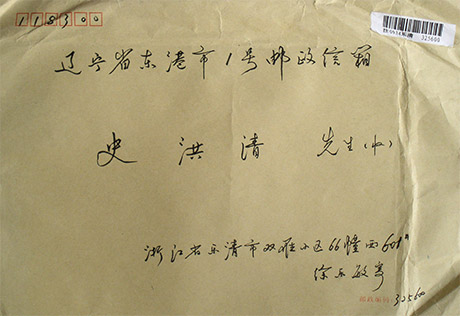 118300
325600
辽宁省东港市1号邮政信箱
史 洪 清 先生(收)
浙江省乐清市双雁小区66幢西601
徐乐敏寄
邮政编码 325600